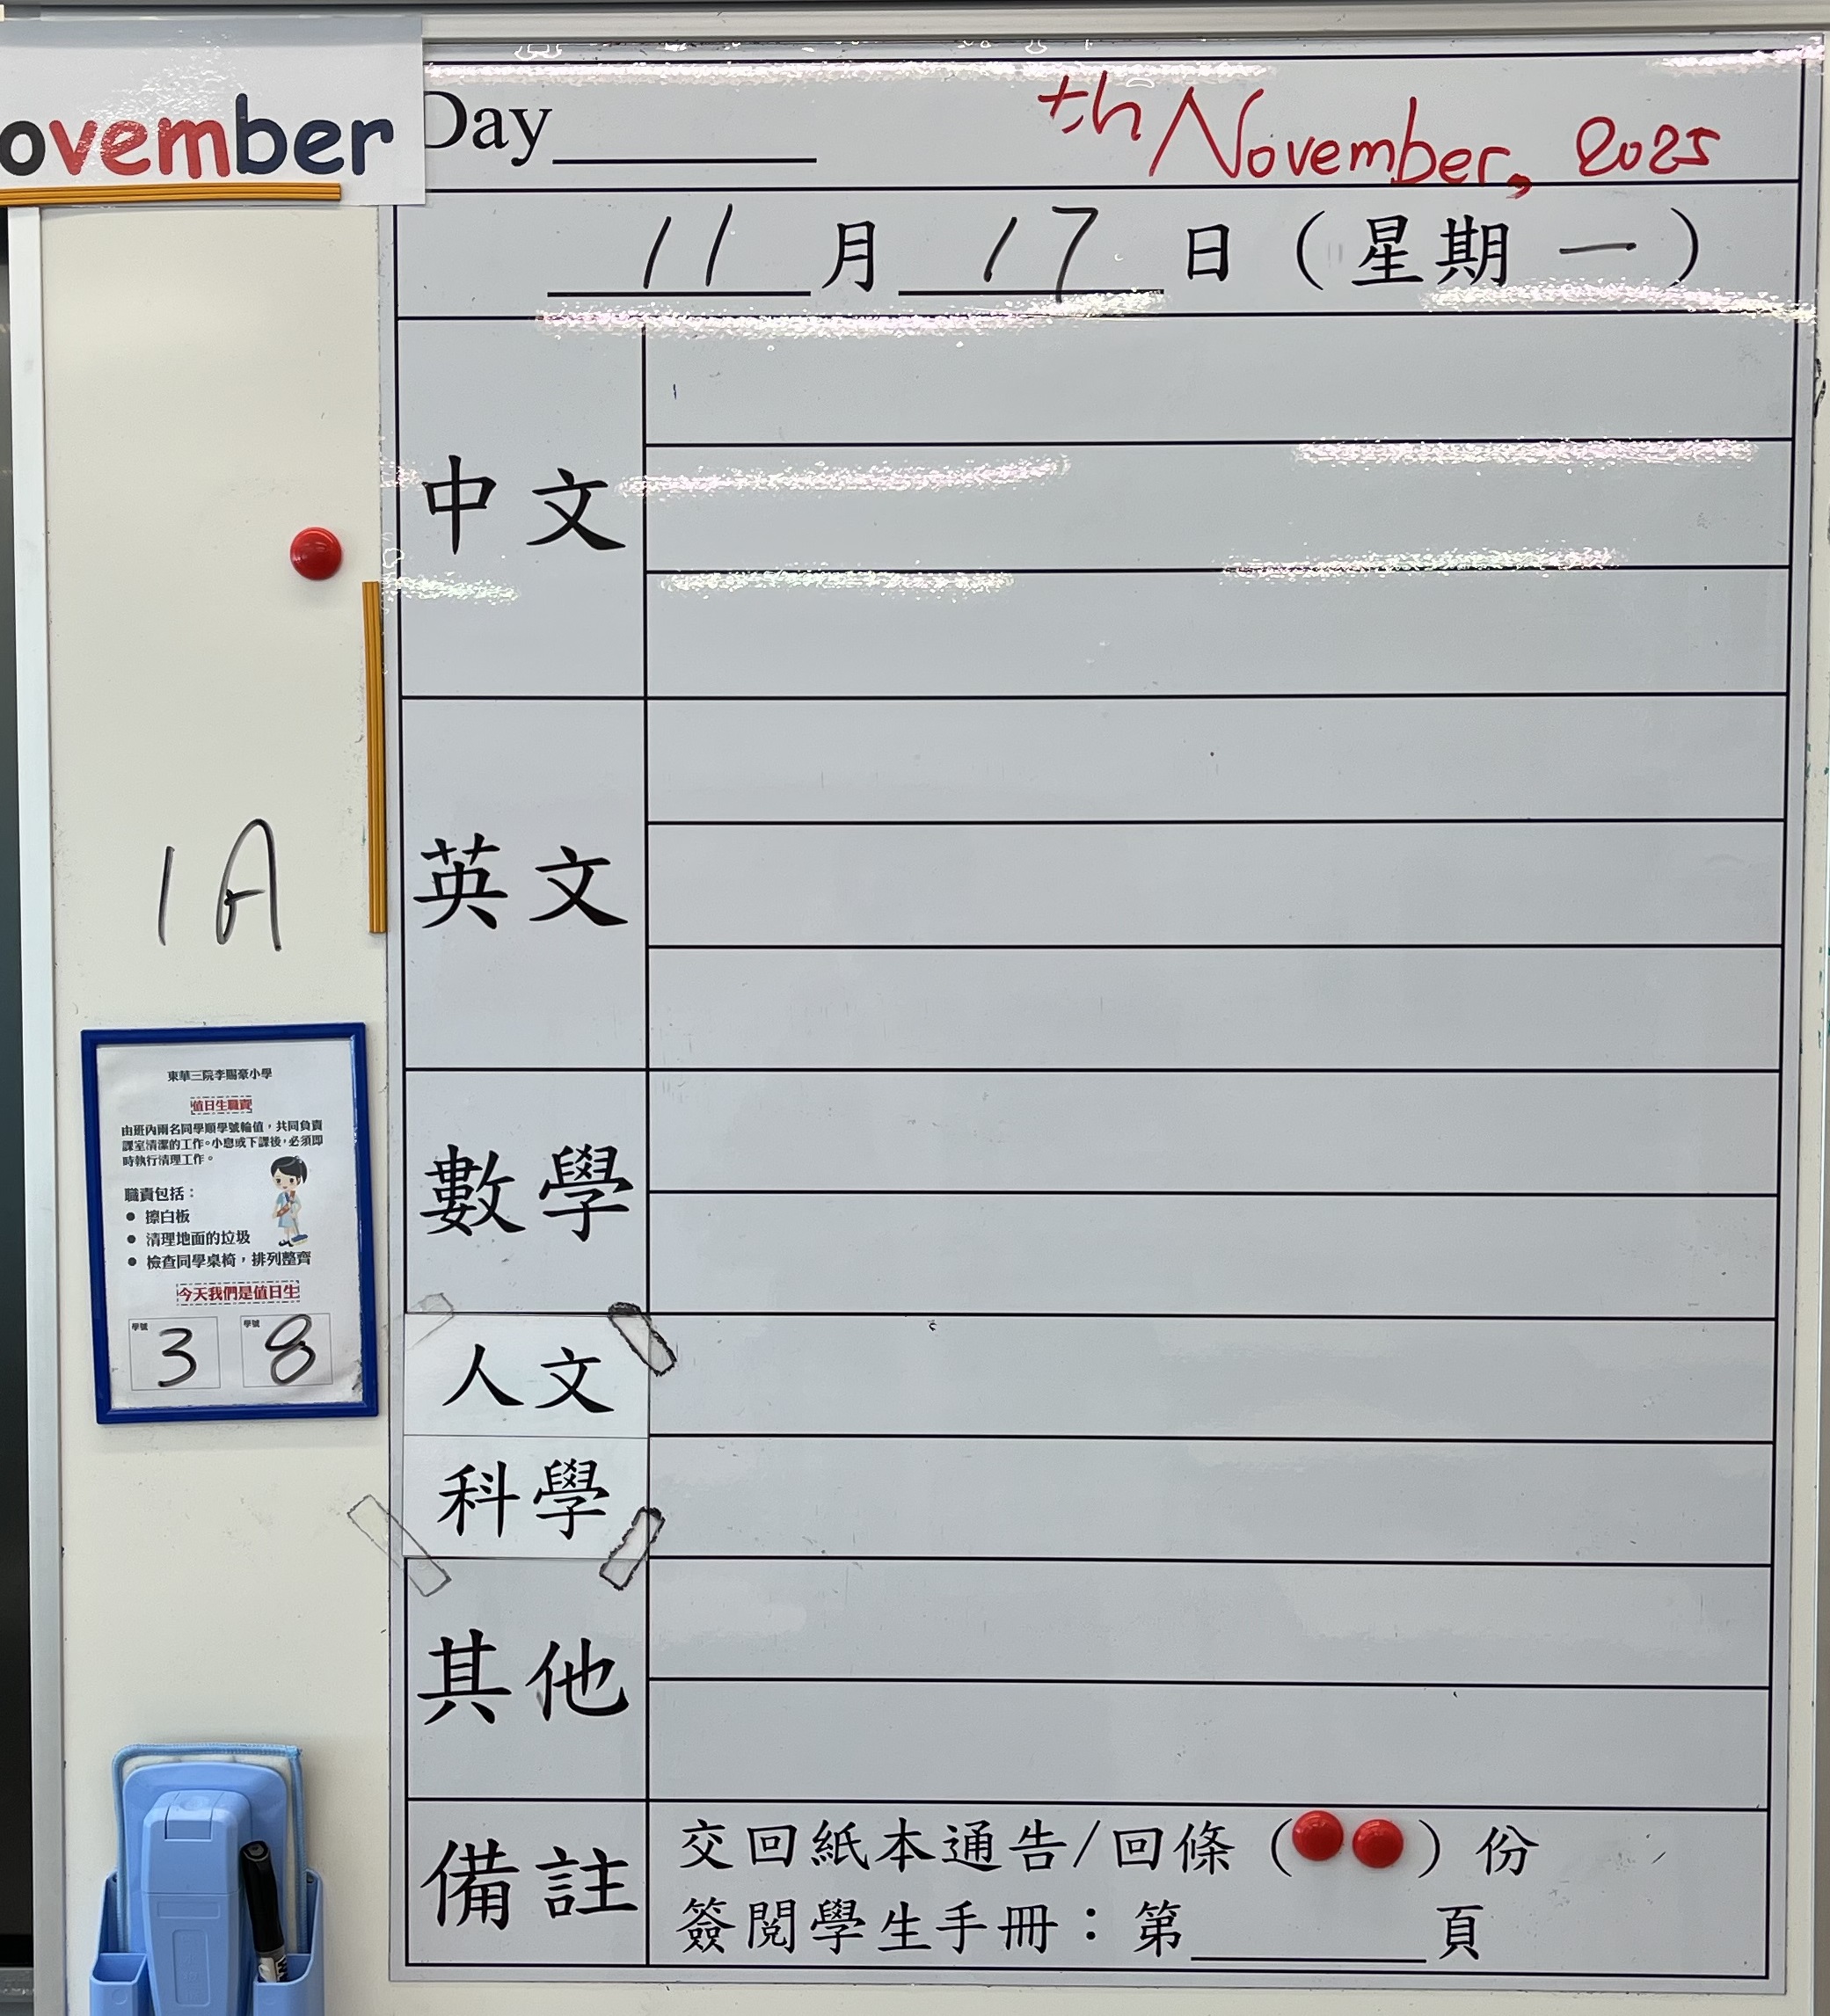 ovember
Day
th November, 2025
11 月 17 日（星期 一）
中文
英文
1A
東華三院李賜豪小學
值日生職責
由班內兩名同學順學號輪值，共同負責
課室清潔的工作。小息或下課後，必須即
時執行清理工作。
職責包括：
● 擦白板
● 清理地面的垃圾
● 檢查同學桌椅，排列整齊
今天我們是值日生
學號 3 學號 8
數學
人文
科學
其他
備註
交回紙本通告/回條（ ）份
簽閱學生手冊：第 頁